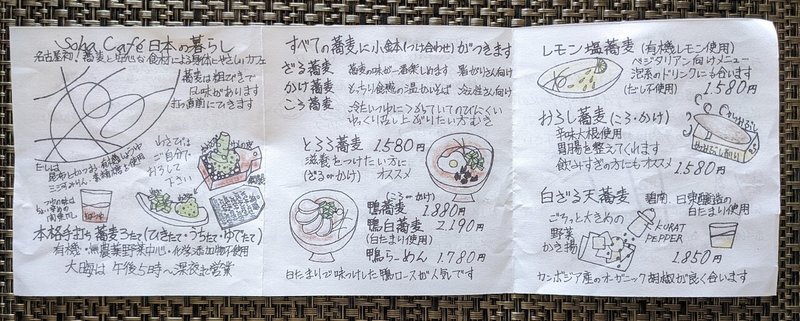 Soba Café 日本の暮らし
名古屋初!蕎麦と安心な食材による身体にやさしいカフェ
蕎麦は粗びきで
風味があります
打つ直前にひきます
だしは
三河みりん
使用
わさびは
ご自分で
おろして
下さい
本格手打ち蕎麦 3たて(ひきたて・うちたて・ゆでたて)
有機・無農薬野菜中心・化学添加物不使用
大晦は 午後5時〜深夜も営業
すべての蕎麦に小鉢(つけ合わせ)がつきます
ざる蕎麦 蕎麦の味が一番楽しめます 暑がりさん向け
かけ蕎麦 もっちり食感の温かいそば 冷え性さん向け
ころ蕎麦 冷たいつゆにつかっていてのびにくい
ゆっくり召し上がりたい方むき
とろろ蕎麦 1.580円
滋養をつけたい方に
(ざるorかけ) オススメ
(ころorかけ)
鴨蕎麦 1.880円
鴨白蕎麦 2.190円
(白たまり使用)
鴨らーめん 1.780円
白たまりで味つけした鴨ロースが人気です
レモン塩蕎麦 (有機レモン使用)
ベジタリアン向けメニュー
泡系のドリンクにも合います
(だし不使用) 1.580円
おろし蕎麦 (ころ・かけ)
辛味大根使用
胃腸を整えてくれます
飲みすぎの方にもオススメ
1.580円
白ざる天蕎麦 碧南、日東醸造の
白たまり使用
ごろっと大きめの
野菜
かき揚
KURAT
PEPPER
1.850円
カンボジア産のオーガニック胡椒が良く合います